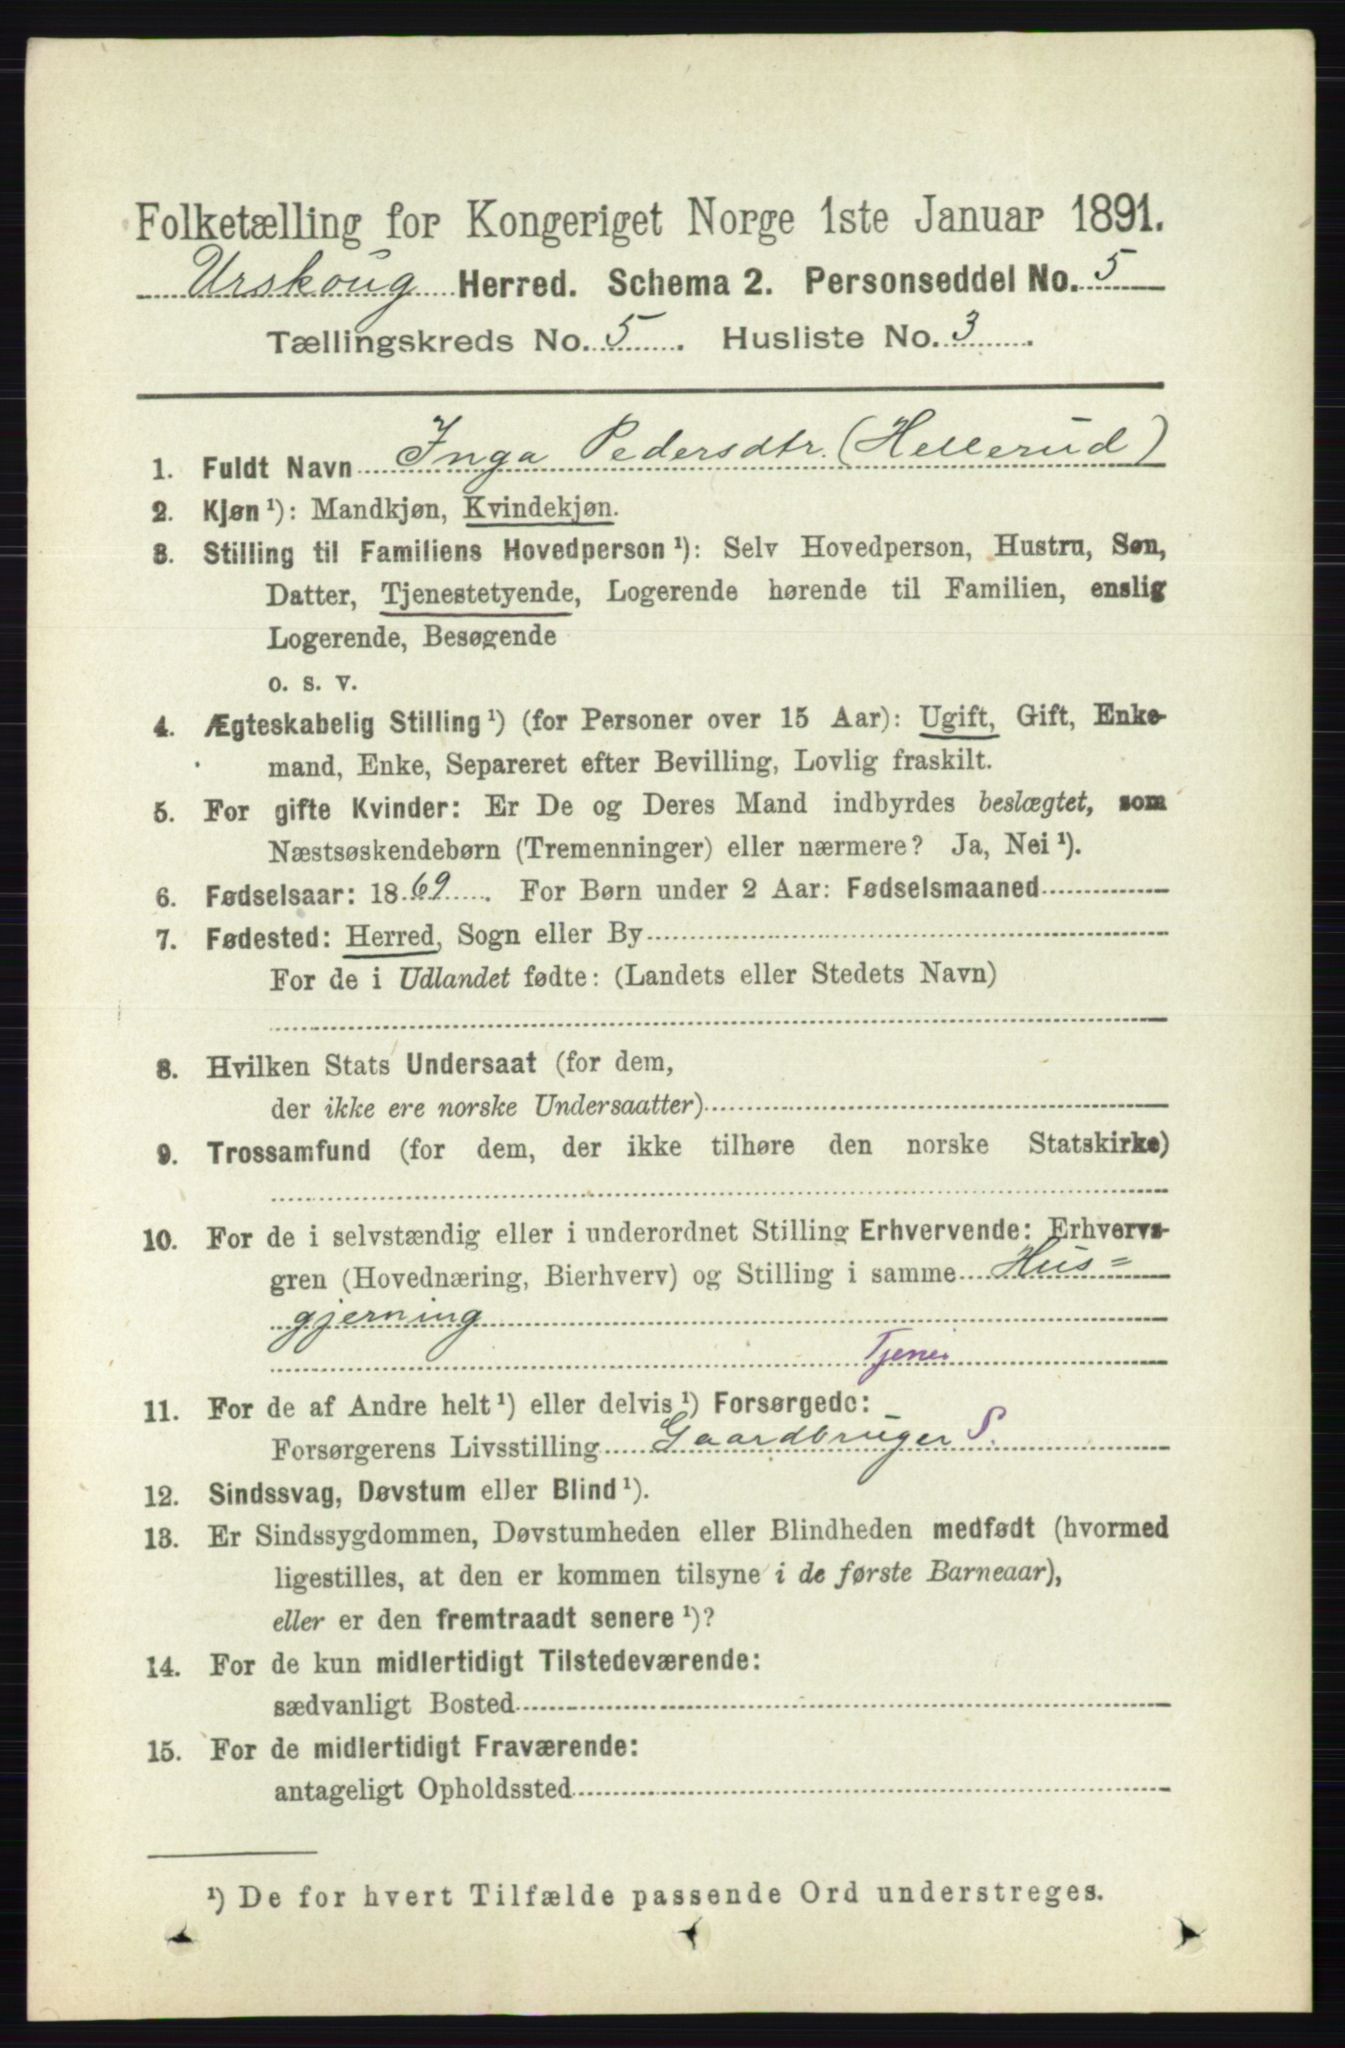 Folketælling for Kongeriget Norge 1ste Januar 1891.
Urskoug Herred. Schema 2. Personseddel No. 5
Tællingskreds No. 5. Husliste No. 3.
1. Fuldt Navn Inga Pedersdtr. (Hellerud)
2. Kjøn¹): Mandkjøn, Kvindekjøn.
3. Stilling til Familiens Hovedperson¹): Selv Hovedperson, Hustru, Søn,
Datter, Tjenestetyende, Logerende hørende til Familien, enslig
Logerende, Besøgende
o. s. v.
4. Ægteskabelig Stilling¹) (for Personer over 15 Aar): Ugift, Gift, Enke-
mand, Enke, Separeret efter Bevilling, Lovlig fraskilt.
5. For gifte Kvinder: Er De og Deres Mand indbyrdes beslægtet, som
Næstsøskendebørn (Tremenninger) eller nærmere? Ja, Nei¹).
6. Fødselsaar: 1869. For Børn under 2 Aar: Fødselsmaaned
7. Fødested: Herred, Sogn eller By
For de i Udlandet fødte: (Landets eller Stedets Navn)
8. Hvilken Stats Undersaat (for dem,
der ikke ere norske Undersaatter)
9. Trossamfund (for dem, der ikke tilhøre den norske Statskirke)
10. For de i selvstændig eller i underordnet Stilling Erhvervende: Erhvervs-
gren (Hovednæring, Bierhverv) og Stilling i samme Hus=
gjerning
Tjener
11. For de af Andre helt¹) eller delvis¹) Forsørgede:
Forsørgerens Livsstilling Gaardbruger S.
12. Sindssvag, Døvstum eller Blind¹).
13. Er Sindssygdommen, Døvstumheden eller Blindheden medfødt (hvormed
ligestilles, at den er kommen tilsyne i de første Barneaar),
eller er den fremtraadt senere¹)?
14. For de kun midlertidigt Tilstedeværende:
sædvanligt Bosted
15. For de midlertidigt Fraværende:
antageligt Opholdssted
¹) De for hvert Tilfælde passende Ord understreges.